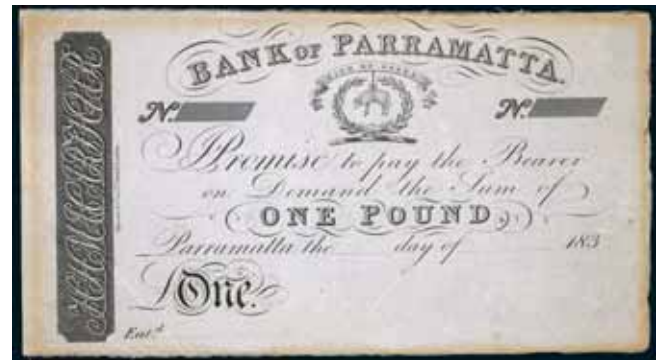 BANK OF PARRAMATTA.
No.
No.
I Promise to pay the Bearer
on Demand the Sum of
ONE POUND,
Parramatta the day of 183
£ One.
Ent.d